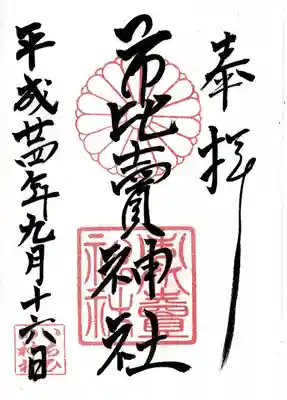 奉拝
市比賣神社
平成廿四年九月十六日